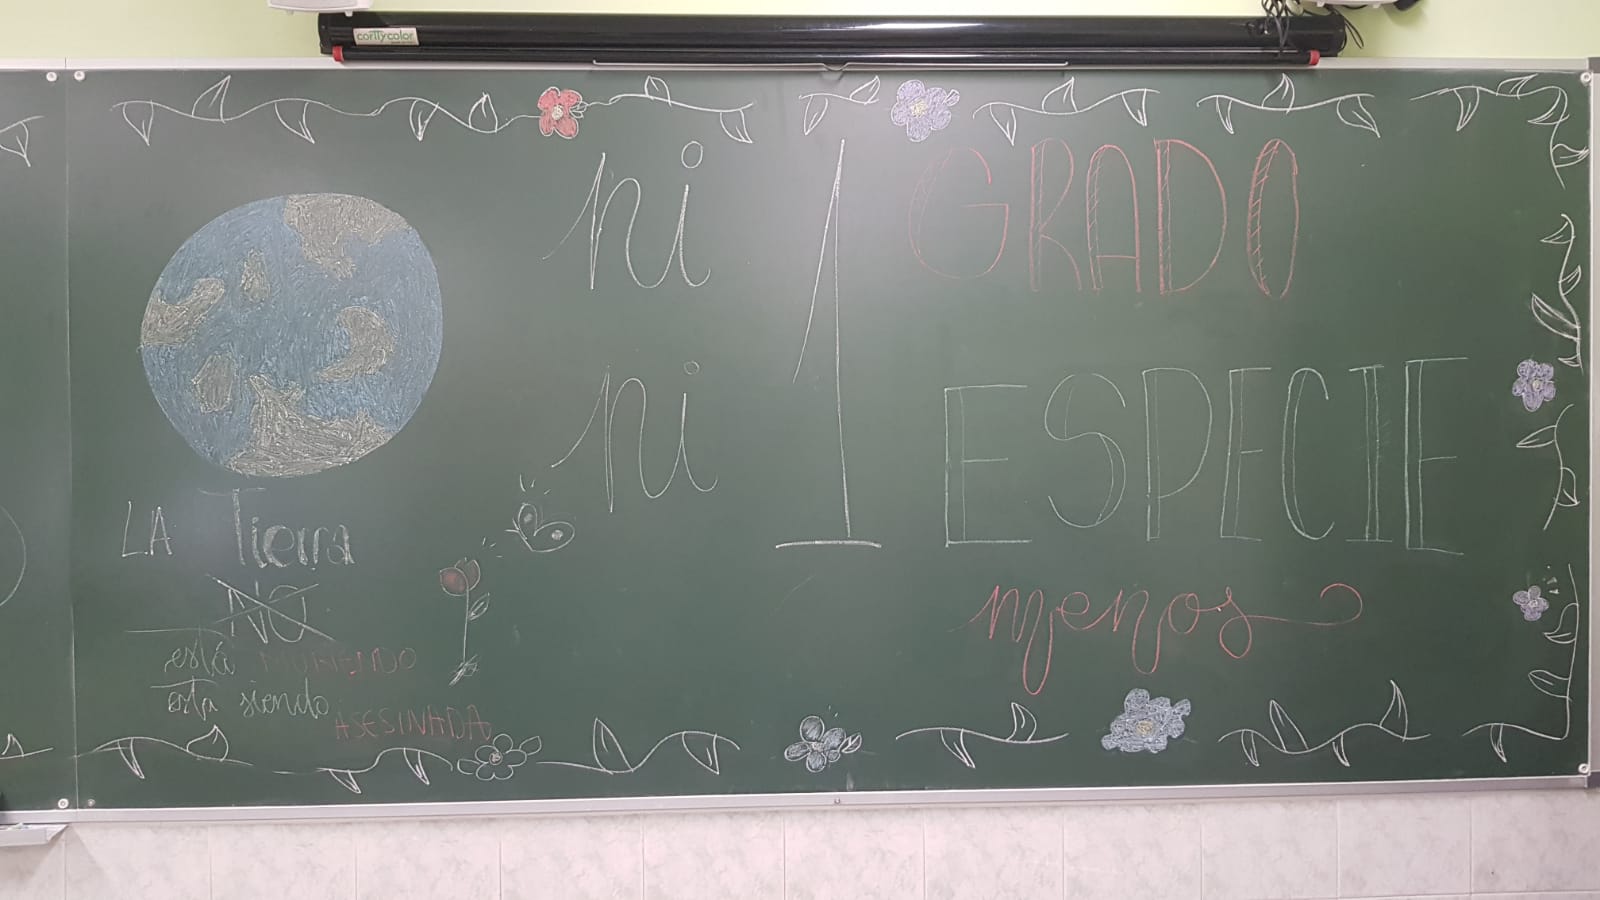 corttycolor
ni 1 GRADO
ni ESPECIE
menos
LA Tierra
NO
está MURIENDO
está siendo
ASESINADA